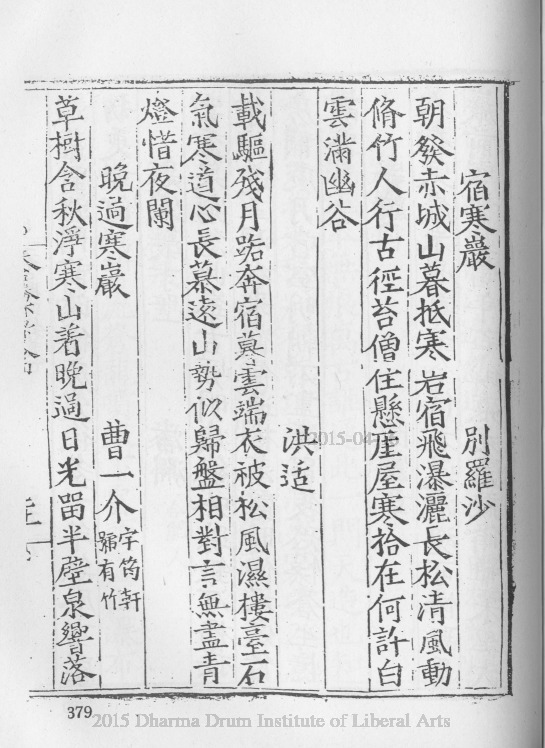 宿寒巖 別羅沙
朝發赤城山暮抵寒岩宿飛瀑灑長松清風動
脩竹人行古徑苔僧住懸崖屋寒拾在何許白
雲滿幽谷
洪适
載驅殘月跡奔宿暮雲端衣被松風濕樓臺石
氣寒道心長慕遠山勢似歸盤相對言無盡青
燈惜夜闌
晚過寒巖 曹一介 字筠軒 號有竹
草樹含秋淨寒山著晚過日光留半壁泉響落
379
2015-04-
2015 Dharma Drum Institute of Liberal Arts